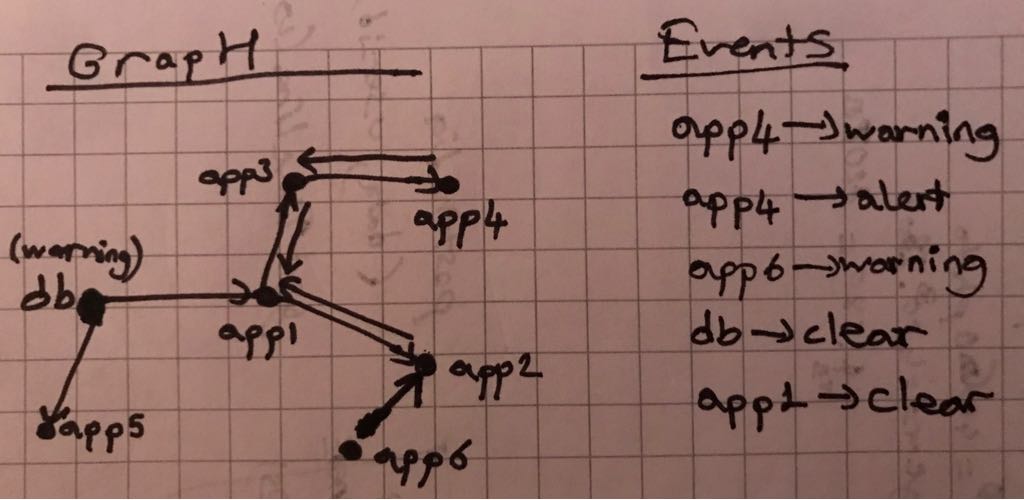 GrapH
app3
app4
(warning)
db
app1
app2
app5
app6
Events
app4 → warning
app4 → alert
app6 → warning
db → clear
app1 → clear